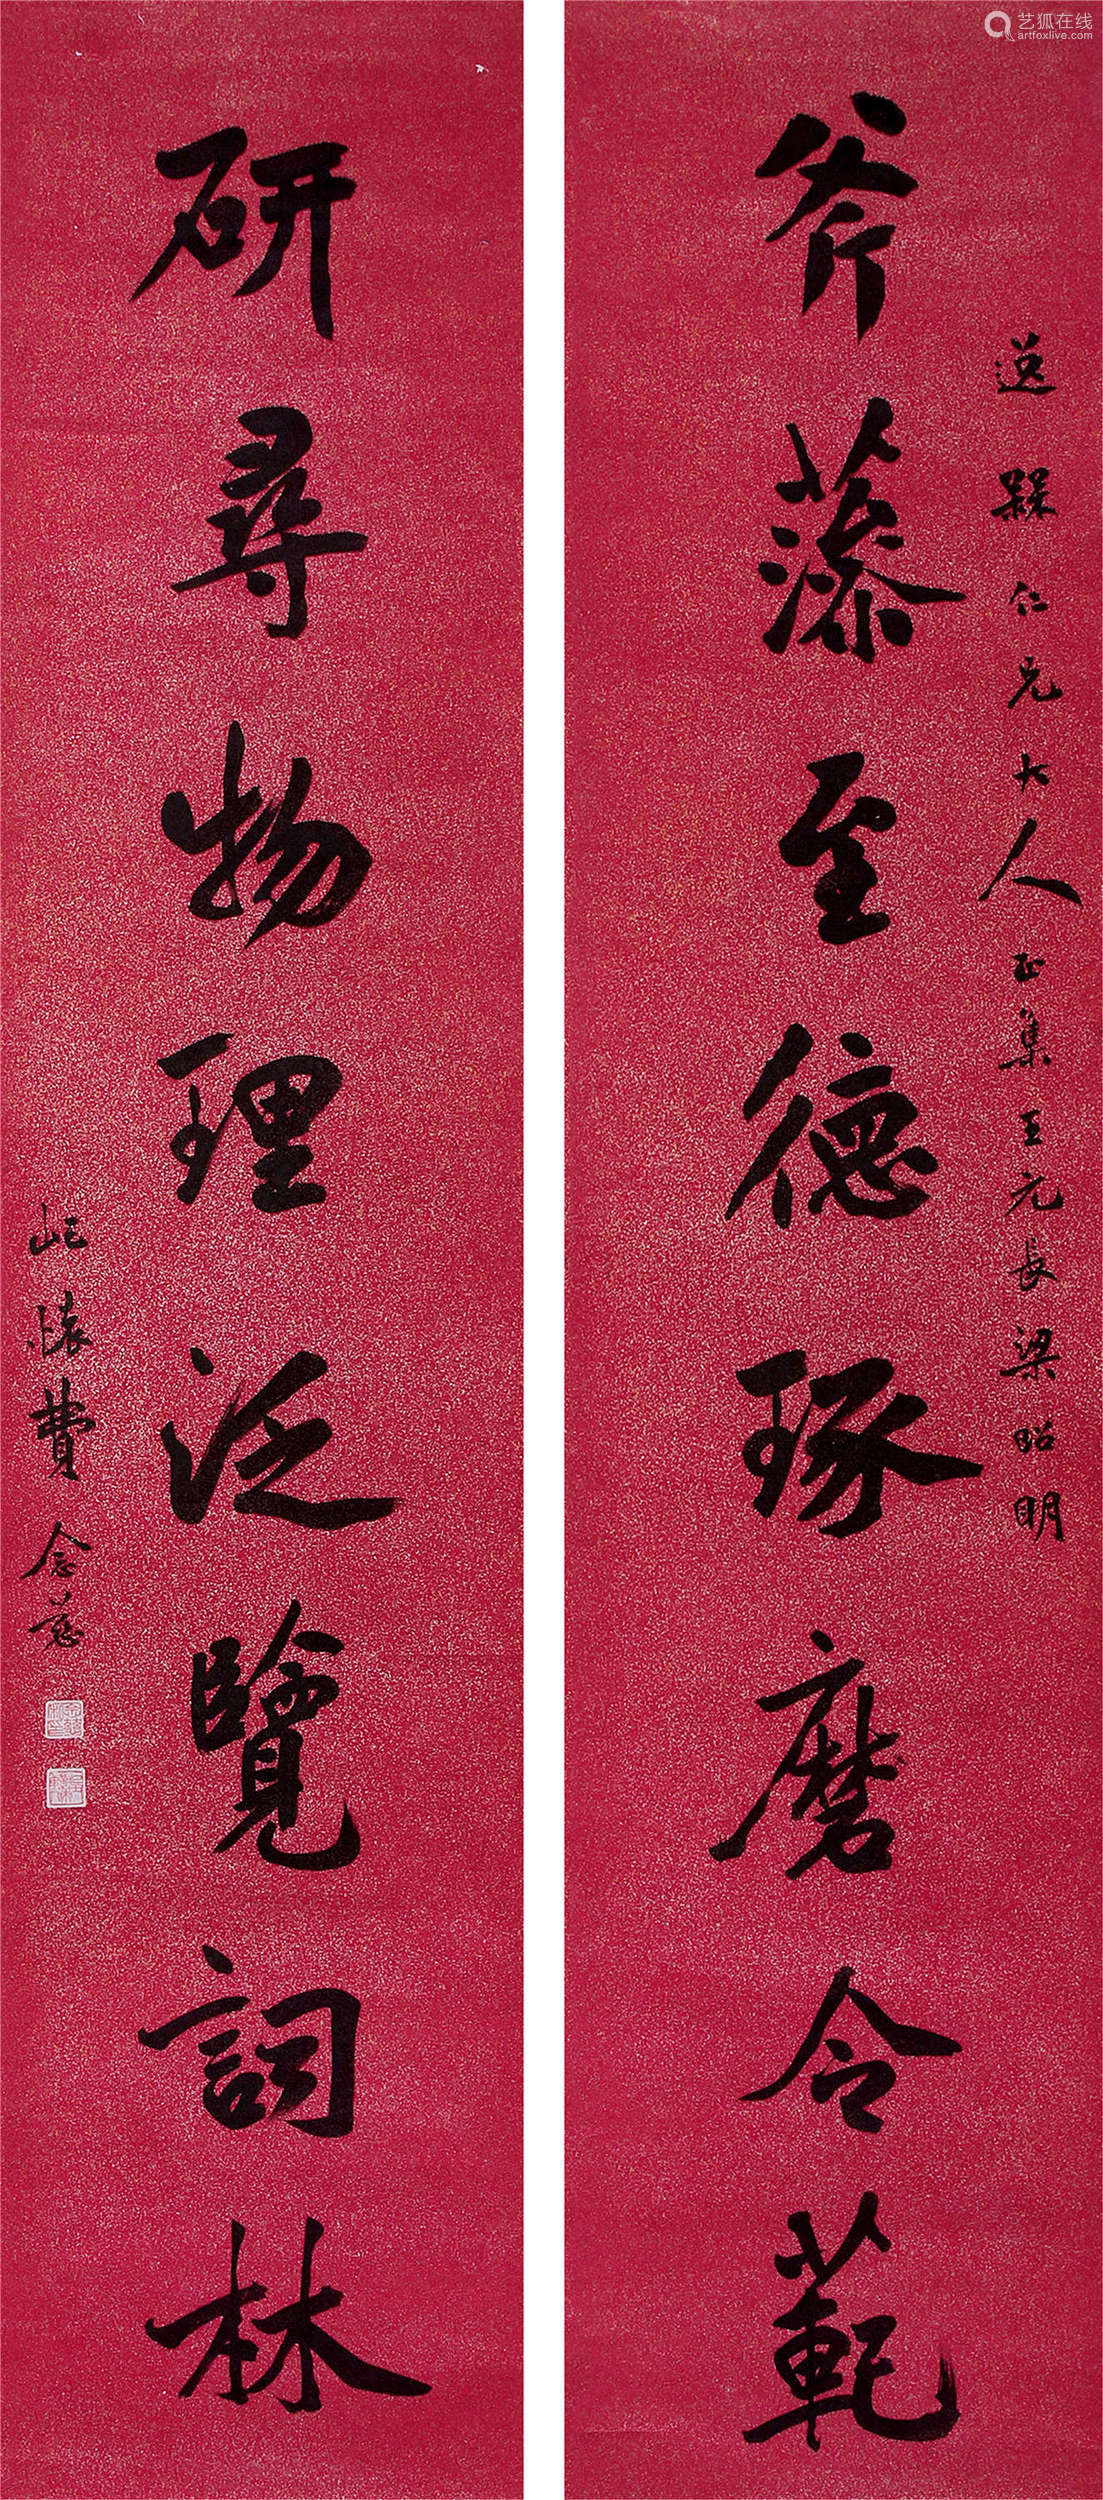 斧藻至德琢磨令範
送槑仁兄大人正集王元長梁昭明
研尋物理泛覽詞林
屺懷費念慈
艺狐在线
artfoxlive.com